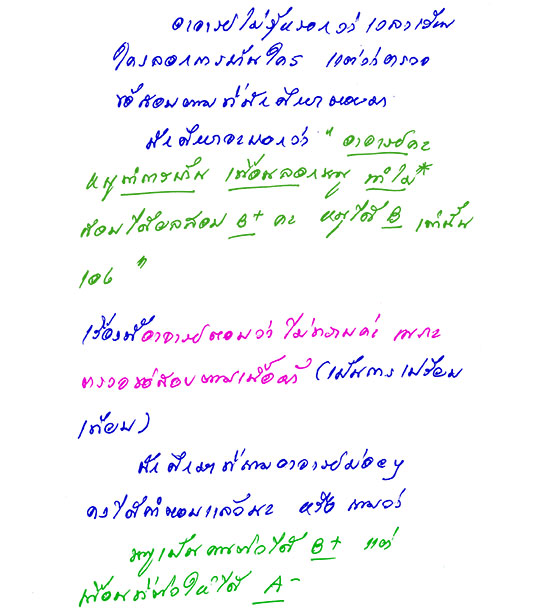 อาจารย์ไม่รู้หรอกว่า เวลาเรียน
ใครลอกการบ้านใคร แต่ว่าตรวจ
ข้อสอบตามที่นักศึกษาตอบมา
นักศึกษาจะบอกว่า " อาจารย์คะ
หนูทำการบ้าน เพื่อนลอกหนู ทำไม*
ตอนได้ผลสอบ B+ คะ หนูได้ B เท่านั้น
เอง "
เรื่องนี้อาจารย์ตอบว่า ไม่ทราบค่ะ เพราะ
ตรวจข้อสอบตามเนื้อผ้า (เป็นการเปรียบ
เทียบ)
นักศึกษาที่ถามอาจารย์บ่อยๆ
คงได้คำตอบแล้วนะ หรือ ถามว่า
หนูเป็นคนติวได้ B+ แต่
เพื่อนที่ติวให้ได้ A-